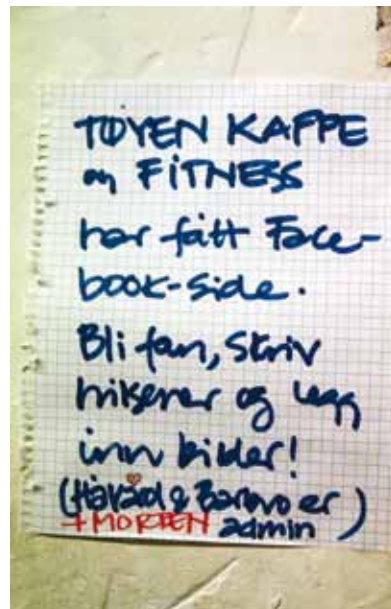 TØYEN KAFFE
og FITNESS
har fått Face-
book-side.
Bli fan, skriv
hilsener og legg
inn bilder!
(Håvard & er)
+MORTEN admin